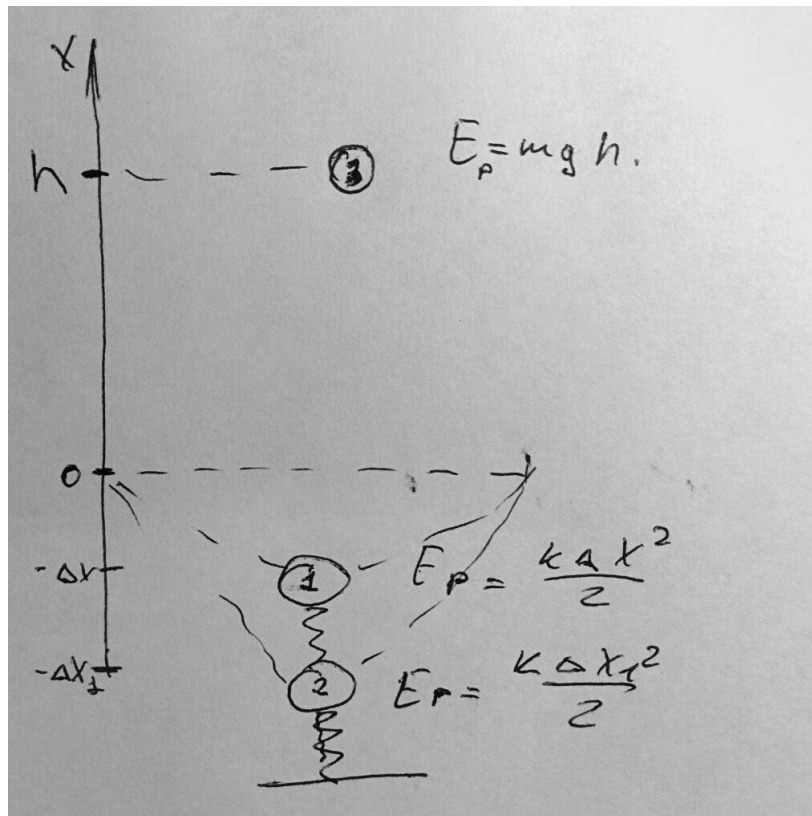 X
h
3
E_p = mgh.
0
-Δx
1
E_p = kΔx²/2
-Δx₁
2
E_p = kΔx₁²/2